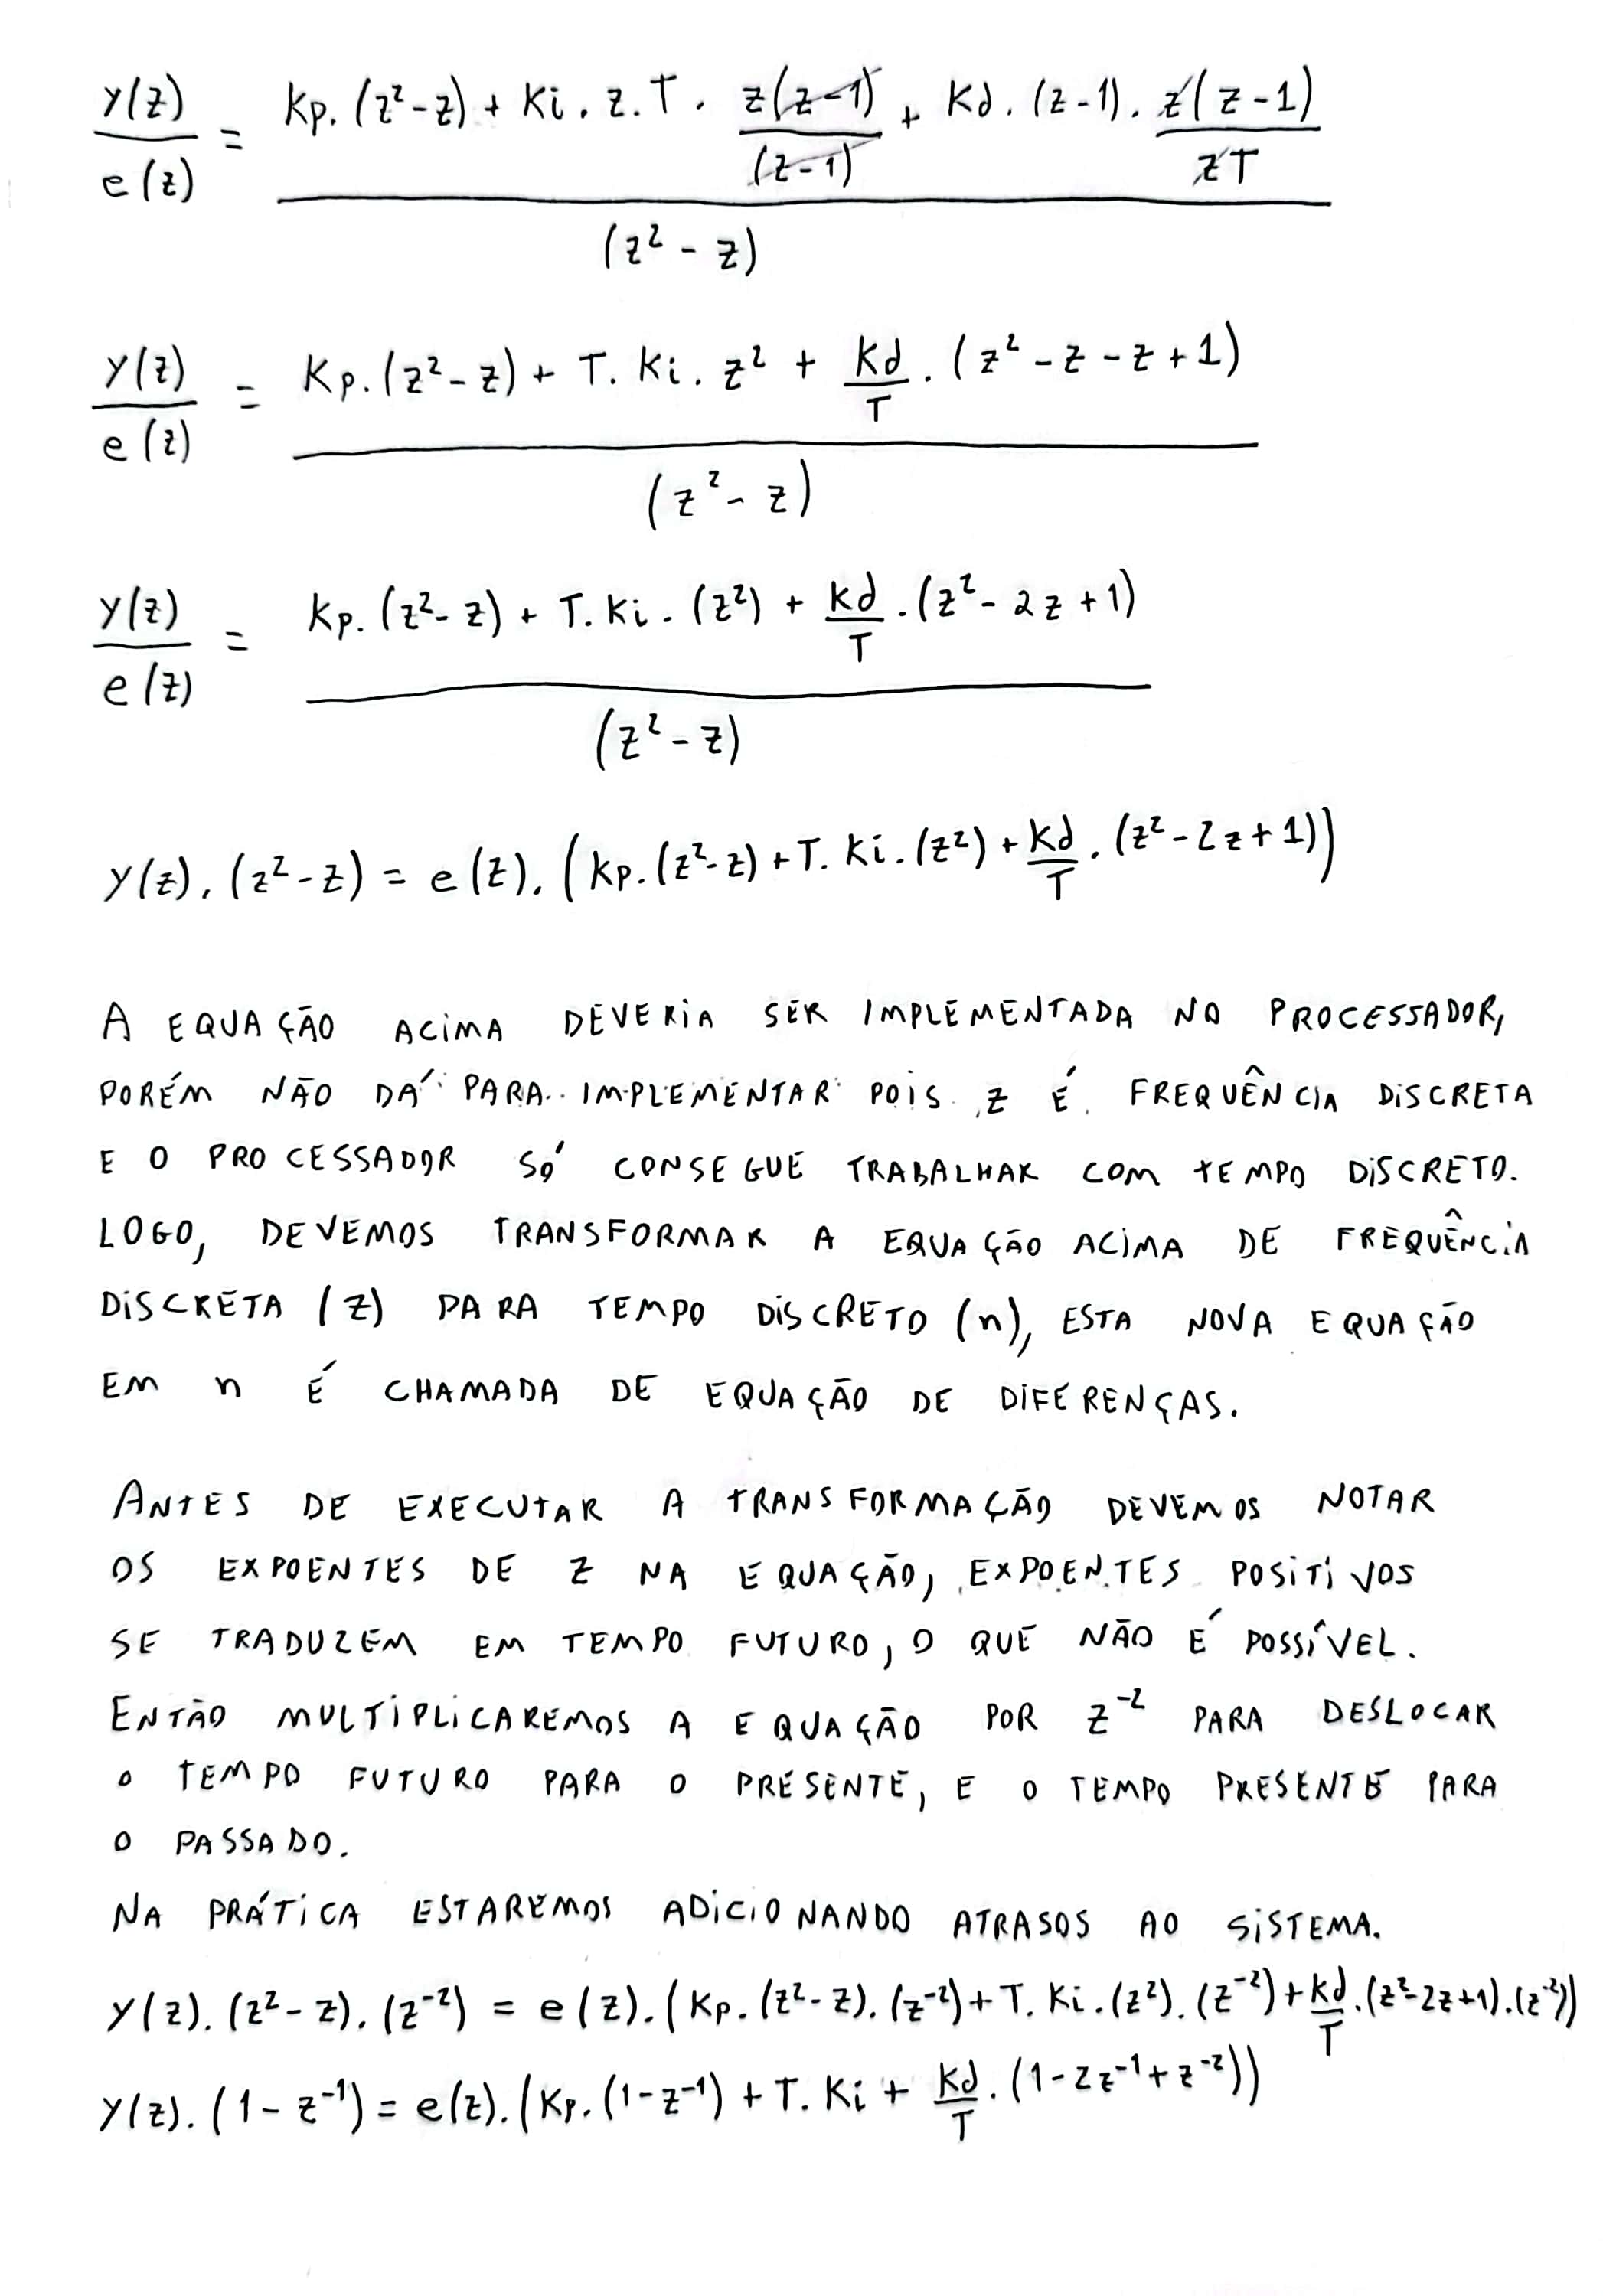 y(z)/e(z) = (Kp.(z²-z) + Ki.z.T.z(z-1)/(z-1) + Kd.(z-1).z(z-1)/zT)/(z²-z)
y(z)/e(z) = (Kp.(z²-z) + T.Ki.z² + Kd/T.(z²-z-z+1))/(z²-z)
y(z)/e(z) = (Kp.(z²-z) + T.Ki.(z²) + Kd/T.(z²-2z+1))/(z²-z)
y(z).(z²-z) = e(z).(Kp.(z²-z) + T.Ki.(z²) + Kd/T.(z²-2z+1))
A EQUAÇÃO ACIMA DEVERIA SER IMPLEMENTADA NO PROCESSADOR,
PORÉM NÃO DÁ PARA IMPLEMENTAR POIS Z É FREQUÊNCIA DISCRETA
E O PROCESSADOR SÓ CONSEGUE TRABALHAR COM TEMPO DISCRETO.
LOGO, DEVEMOS TRANSFORMAR A EQUAÇÃO ACIMA DE FREQUÊNCIA
DISCRETA (Z) PARA TEMPO DISCRETO (n), ESTA NOVA EQUAÇÃO
EM n É CHAMADA DE EQUAÇÃO DE DIFERENÇAS.
ANTES DE EXECUTAR A TRANSFORMAÇÃO DEVEMOS NOTAR
OS EXPOENTES DE Z NA EQUAÇÃO, EXPOENTES POSITIVOS
SE TRADUZEM EM TEMPO FUTURO, O QUE NÃO É POSSÍVEL.
ENTÃO MULTIPLICAREMOS A EQUAÇÃO POR Z⁻² PARA DESLOCAR
O TEMPO FUTURO PARA O PRESENTE, E O TEMPO PRESENTE PARA
O PASSADO.
NA PRÁTICA ESTAREMOS ADICIONANDO ATRASOS AO SISTEMA.
y(z).(z²-z).(z⁻²) = e(z).(Kp.(z²-z).(z⁻²) + T.Ki.(z²).(z⁻²) + Kd/T.(z²-2z+1).(z⁻²))
y(z).(1-z⁻¹) = e(z).(Kp.(1-z⁻¹) + T.Ki + Kd/T.(1-2z⁻¹+z⁻²))